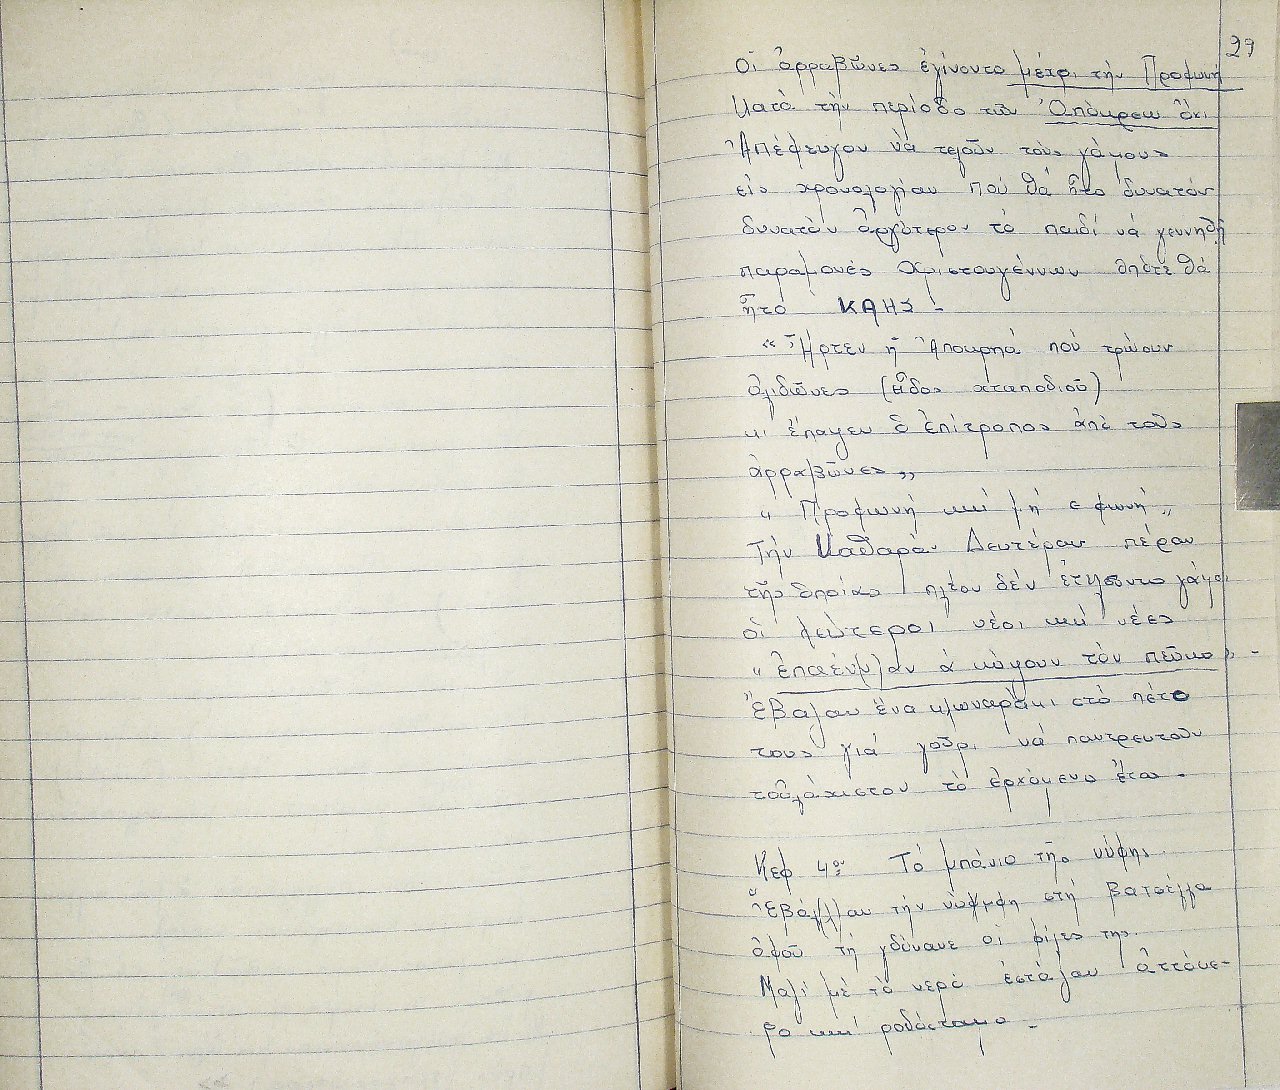 29
Οἱ ἀρραβῶνες ἐγίνοντο μέχρι τὴν Προφωνή
Κατὰ τὴν περίοδο τῶν Ἀπόκρεω ὄχι
Ἀπέφευγον νὰ τελοῦν τοὺς γάμους
εἰς χρονολογίαν ποὺ θὰ ἦτο δυνατόν
δυνατὸν ἀργότερον τὸ παιδί νά γεννηθῆ
παραμονές Χριστουγέννων ὁπότε θὰ
ἦτο ΚΑΗΣ -
« Ἦρτεν ἡ Ἀποκρηά πού τρώσουν
ὀλιδῶνες (εἶδος χταποδιοῦ)
κι ἐπαγεν ὁ ἐπίτροπος ἀπὲ τοὺς
ἀρραβῶνες „
" Προφωνή καὶ μή ε φωνή „
Τὴν Καθαρὰν Δευτέραν πέραν
τῆς ὁποίας πλέον δὲν ἐτελοῦντο γάμοι
οἱ λεύτεροι νέοι καὶ νέες
" ἐπαέν(ν)αν ἀ κόψουν τὸν πεῦκο " -
Ἔβαζαν ἕνα κλωναράκι στὸ πέτο
τους γιὰ γοῦρι νὰ παντρευτοῦν
τοὐλάχιστον τὸ ἐρχόμενο ἔτος -
Κεφ 4ον Τὸ μπάνιο τῆς νύφης
Ἐβάλ(λ)αν τὴν νύφφη στὴ βατσέλλα
ἀφοῦ τὴ γδύνανε οἱ φίλες της.
Μαζὶ μὲ τὸ νερὸ ἐστάζαν ἀττόνε-
ρο καὶ ροδόσταμο -